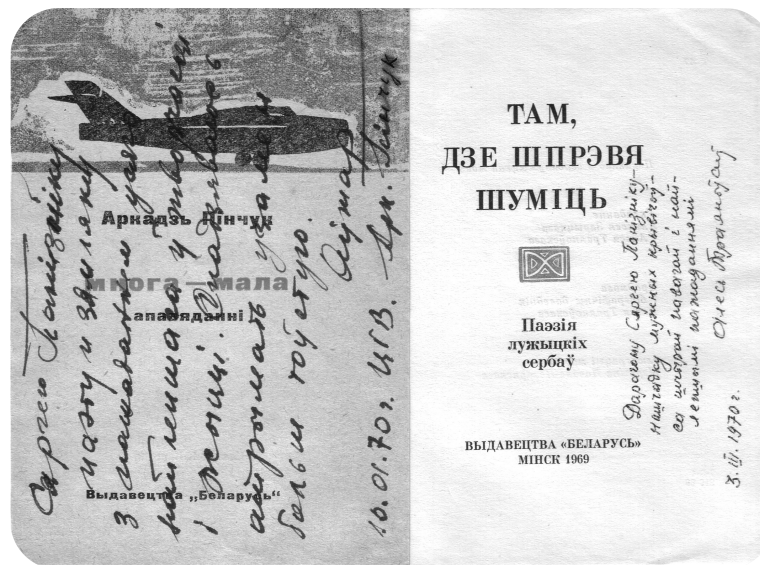 Аркадзь Рінчук
многа—мала
апавяданні
Выдавецтва „Беларусь“
Сяргею Панізніку
паэту и земляку
з пажаданнем усяго
найлепшага у творчасці
і жыцці. Спадзяваюсь
атрымать узамен
больш тоўстую.
Аўтар
10.01.70г. ЦГВ. Арк. Рінчук
ТАМ,
ДЗЕ ШПРЭВЯ
ШУМІЦЬ
Паэзія
лужыцкіх
сербаў
ВЫДАВЕЦТВА «БЕЛАРУСЬ»
МІНСК 1969
Дарагому Сяргею Панізніку—
нашчадку мужных крывічоў—
са шчырай павагай і най-
лепшымі пажаданнямі
Алесь Траяноўскі
3.III.1970 г.